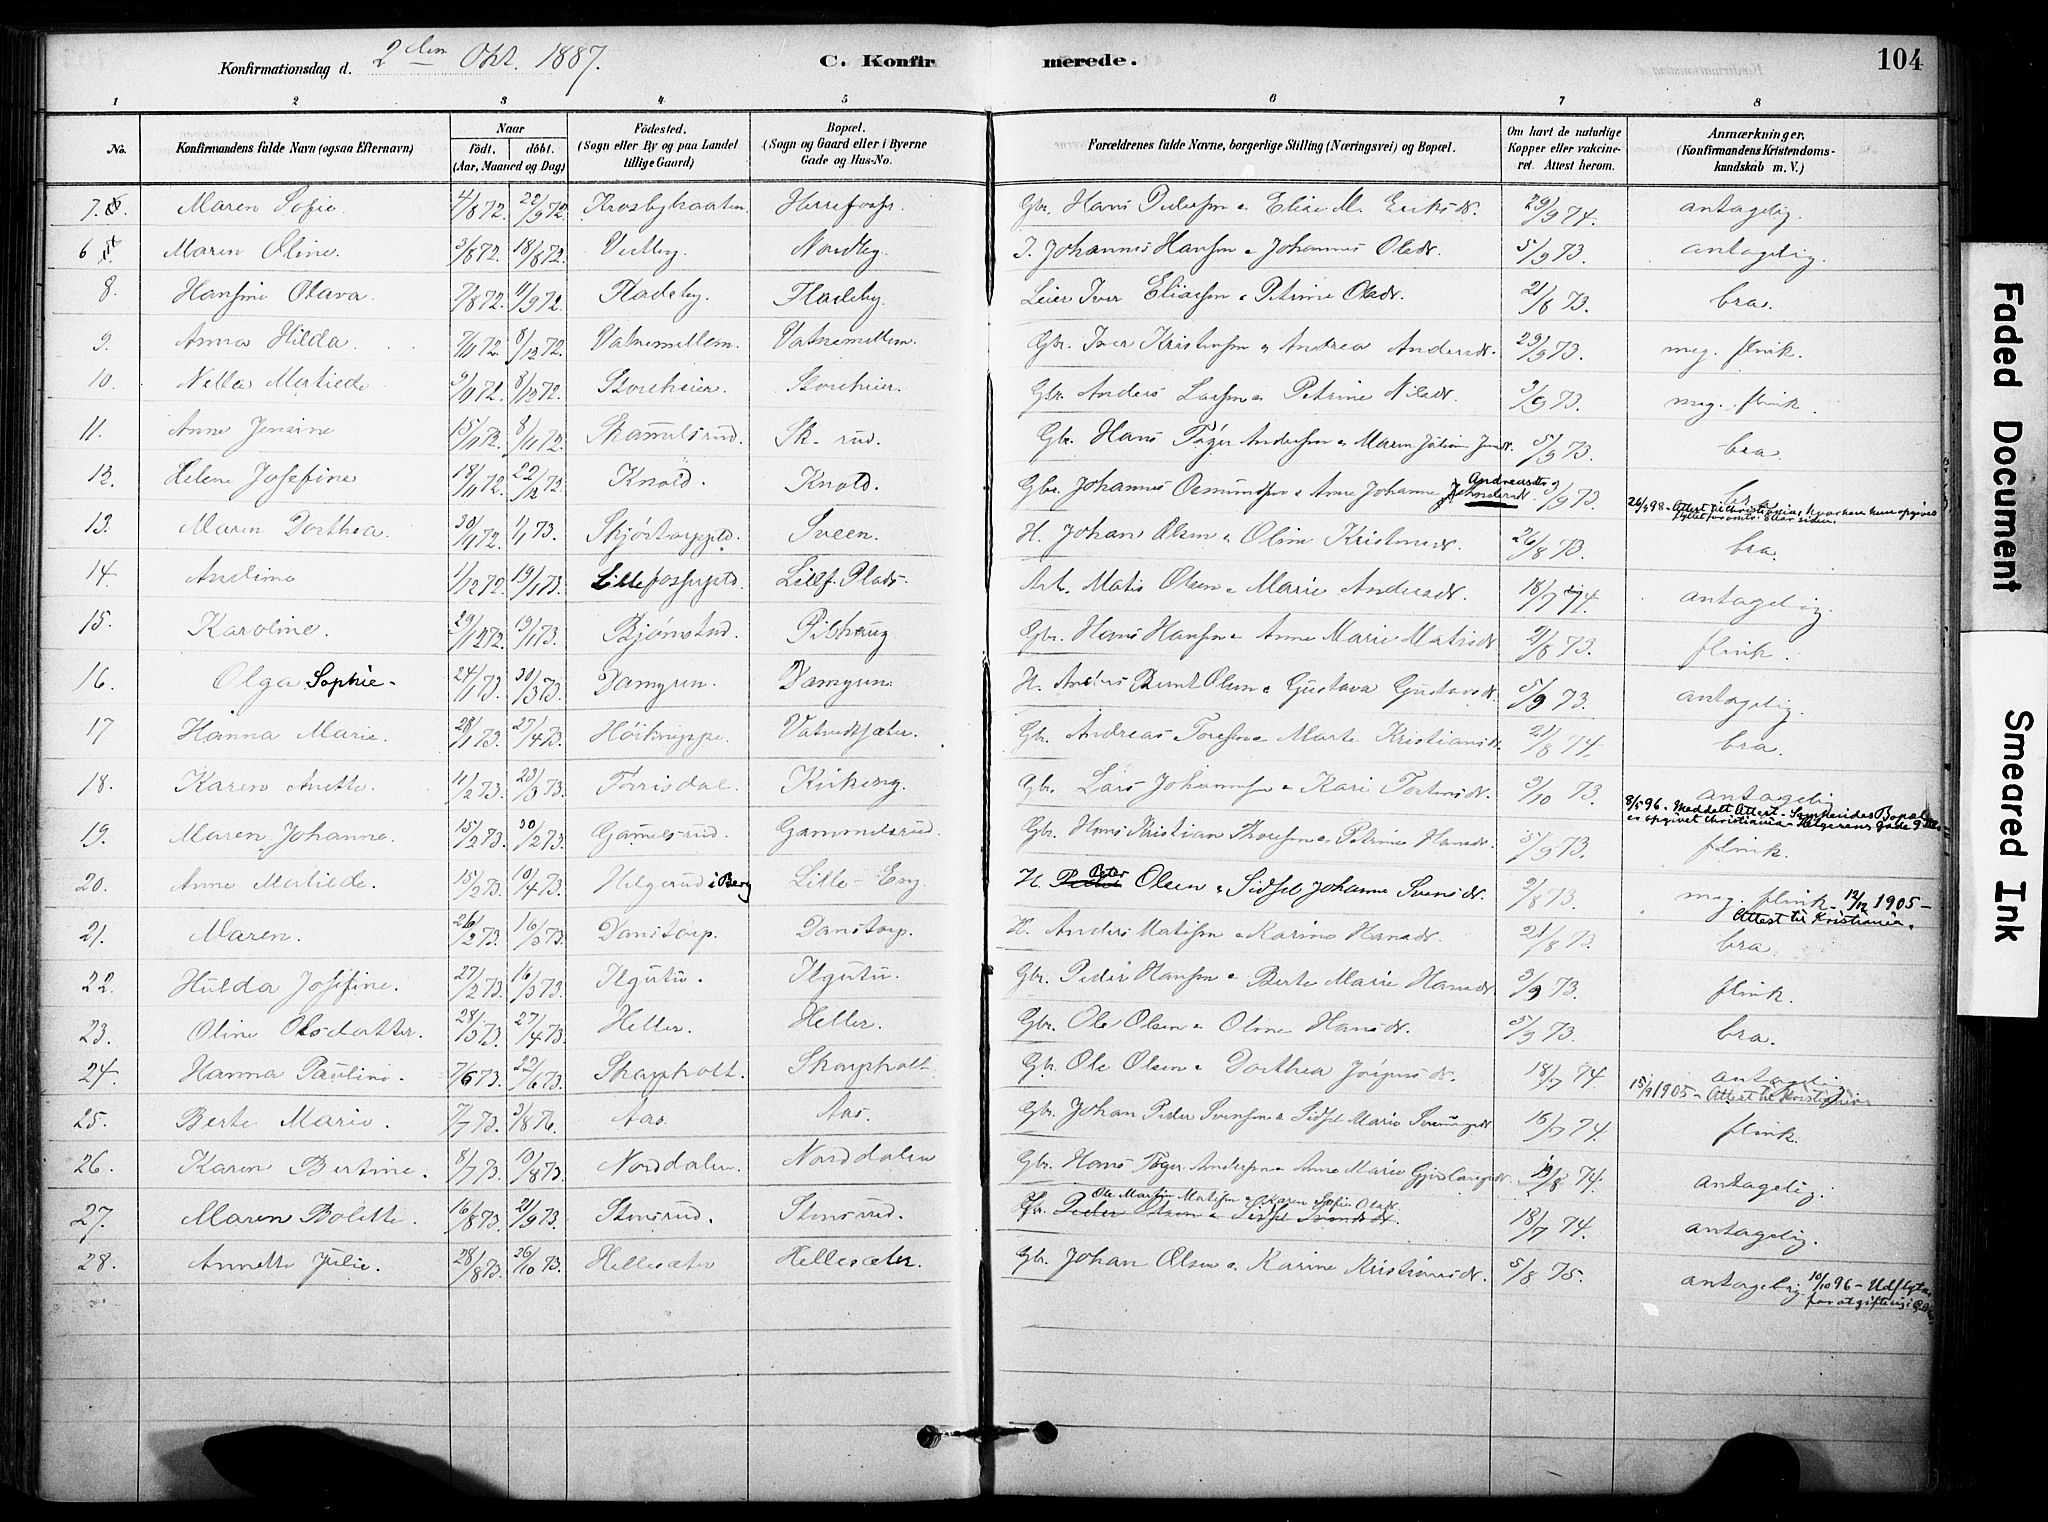 Konfirmationsdag d. 2den Okt. 1887. C. Konfirmerede. 104
1 2 3 4 5 6 7 8
No. Konfirmandens fulde Navn (ogsaa Efternavn) Naar Födt. döbt. (Aar, Maaned og Dag) Födested. (Sogn eller By og paa Landet tillige Gaard) Bopæl. (Sogn og Gaard eller i Byerne Gade og Hus-No. Forældrenes fulde Navne, borgerlige Stilling (Næringsvei) og Bopæl. Om havt de naturlige Kopper eller vakcineret. Attest herom. Anmærkninger, (Konfirmandens Kristendomskundskab m. V.)
7. Maren Sofie. 4/8 72. 22/9 72. Herrefoss. Gbr. Hans Pedersen & Elise M. Eriksdt. 29/9 74. antagelig.
6 Maren Oline. 3/8 72. 18/8 72. Vestby. Nordby. I. Johannes Hansen & Johannes Olsdt. 5/9 73. antagelig.
8. Hansine Olava. 7/8 72. 11/9 72. Fladeby. Fladeby. Leier Iver Eliassen & Petrine Olsdt. 21/8 73. bra.
9. Anna Hilda. 7/11 72. 8/12 72. Vatnemellem. Vatnemellem. Gbr. Iver Kristensen & Andrea Andersdt. 29/9 73. meg. flink.
10. Nella Matilde 9/11 72. 8/12 72. Storeheier. Storeheier. Gbr. Anders Larsen & Petrine Nilsdt. 3/9 73. meg. flink.
11. Anne Jensine 15/11 72. 8/11 72. Skammelsrud. Sk-rud. Gbr. Hans Töger Andersen & Maren Juliane Jensdt. 5/9 73. bra.
12. Helene Josefine 18/11 72. 22/12 72. Knold. Knold. Gbr. Johannes Osmundsen & Anne Johanne Andersdt. Andreasdtr. 3/9 73. bra. 26/9 98 - Attest til Christiania, hvor hun opgives
13. Maren Dorthea. 30/11 72. 1/1 73. Skjöstorppld. Sveen. H. Johan Olsen & Oline Kristensdt. 26/8 73. bra.
14. Andine 1/12 72. 19/1 73. Lillefosspld. Lillf. Plads. Arb. Matis Olsen & Marie Andersdt. 18/7 74. antagelig.
15. Karoline. 29/12 72. 19/1 73. Bjørnstad. Pilshaug Gbr. Hans Hansen & Anne Marie Matisdt. 2/8 73. flink.
16. Olga Sophie. 24/1 73. 30/3 73. Damgren. Damgren. H. Anders Bernt Olsen & Gustava Gustavsdt. 5/9 73. antagelig.
17 Hanna Marie. 28/1 73. 27/4 73. Höiknippe. Vatvedtsæter. Gbr. Andreas Toresen & Marte Kristiansdt. 21/8 74. bra.
18. Karen Anette. 11/2 73. 23/3 73. Torrisdal. Kirkeng. Gbr. Lars Johannesen & Kari Torstensdt. 3/10 73. antagelig
19. Maren Johanne. 15/2 73. 30/2 73. Gamelsrud. Gammelsrud. Gbr. Hans Kristian Thoresen & Petrine Hansdt. 5/9 73. flink. 8/5 96. Meddelt Attest - Samtidig Bopæl er opgivet Christiania - Helgesens Gade 9
20. Anne Matilde. 15/2 73. 10/4 73. Helgerud i Berg Lille-Eng H. Peder Peter Olsen & Sidsel Johanne Svensdt. 2/8 73. meg. flink - 12/12 1905 - Attest til Kristiania.
21. Maren. 26/2 73. 16/3 73. Danstorp. Danstorp. H. Anders Matisen & Karine Hansdt. 21/8 73. bra.
22. Hulda Josefine. 27/2 73. 16/3 73. Ilgutu. Ilgutu. Gbr. Peder Hansen & Berte Marie Hansdt. 3/9 73. flink.
23. Oline Olsdatter. 28/3 73. 27/4 73. Heller. Heller. Gbr. Ole Olsen & Oline Hansdt. 5/9 73. bra.
24. Hanna Pauline. 7/6 73. 22/6 73. Skarpholt. Skarpholt. Gbr. Ole Olsen & Dorthea Jörgensdt. 18/7 74 antagelig 15/9 1905 - Attest til Kristiania
25. Berte Marie. 7/7 73. 3/8 76. Aas. Aas. Gbr. Johan Peder Svensen & Sidsel Marie 16/7 74. flink.
26. Karen Bertine. 8/7 73. 10/8 73. Norddalen. Norddalen Gbr. Hans Töger Andersen & Anne Marie 19/8 74. antagelig.
27. Maren Bolette. 16/8 73. 21/9 73. Stensrud. Stensrud. Gbr. Peder Olsen & Sidsel Svendsdt. Ole Martin Matisen & Karen Sofie Olsdt. 18/7 74. antagelig.
28. Annette Julie. 28/8 73. 26/10 73. Hellesæter Hellesæter. Gbr. Johan Olsen & Karine Kristiansdt. 5/8 75. antagelig. 10/10 96 - Udflyttn.
Faded Document
Smeared Ink